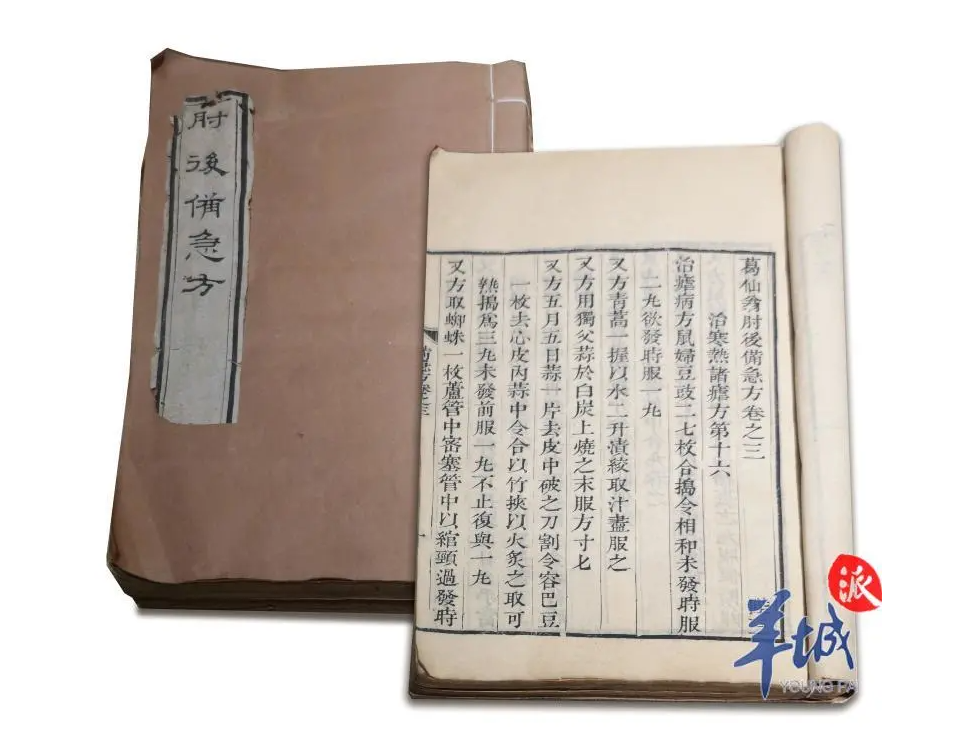 肘後備急方
葛仙翁肘後備急方卷之三
治寒熱諸瘧方第十六
治瘧病方鼠婦豆豉二七枚合搗令相和未發時服
二丸欲發時服一丸
又方青蒿一握以水二升漬絞取汁盡服之
又方用獨父蒜於白炭上燒之末服方寸匕
又方五月五日蒜一片去皮中破之刀割令容巴豆
一枚去心皮內蒜中令合以竹挾以火炙之取可
熱搗爲三丸未發前服一丸不止復與一丸
又方取蜘蛛一枚蘆管中密塞管中以綰頸過發時
派
羊城
YOUNG PA